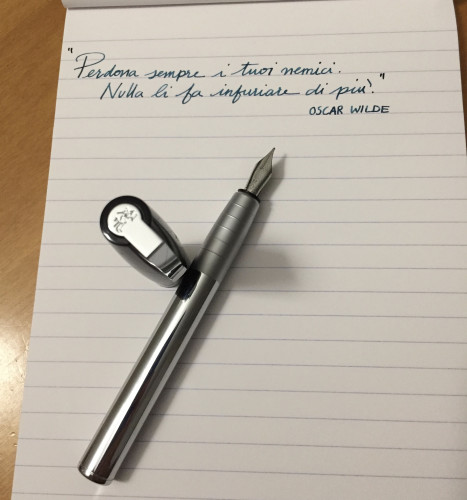 "Perdona sempre i tuoi nemici.
Nulla li fa infuriare di più."
OSCAR WILDE